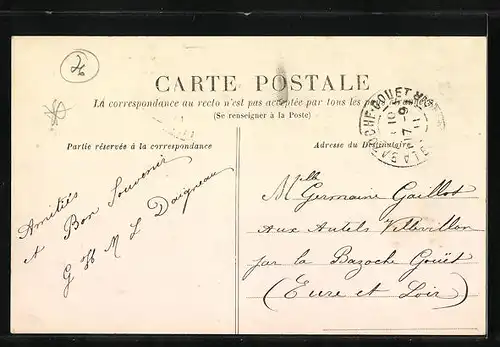 CARTE POSTALE
La correspondance au recto n'est pas acceptée par tous les pays étrangers
(Se renseigner à la Poste)
Partie réservée à la correspondance
Adresse du Destinataire
Amitiés
et Bon Souvenir
G M L Daigneau
Mlle Germaine Gaillot
aux Autels Villevillon
par la Bazoche Gouët
(Eure et Loir)
LA BAZOCHE-GOUET